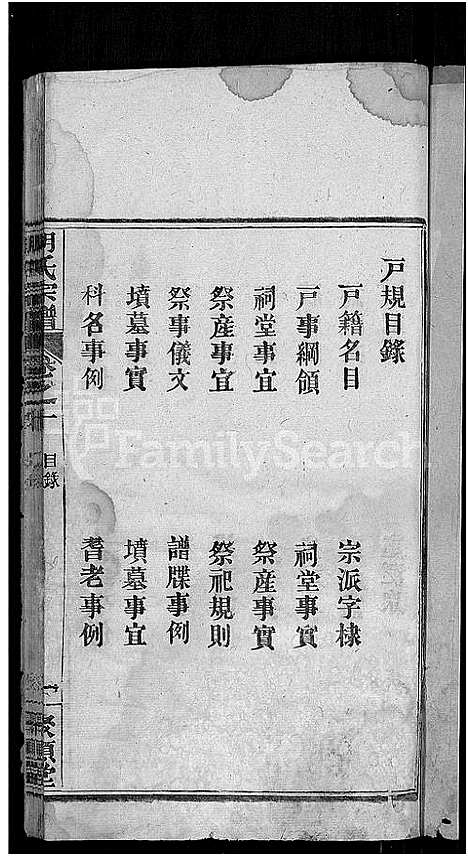 戸規目錄
戸籍名目 宗派字棣
戸事綱領 祠堂事實
祠堂事宜 祭產事實
祭產事宜 祭祀規則
祭事儀文 譜牒事例
墳墓事實 墳墓事宜
科名事例 耆老事例
胡氏宗譜
目錄
FamilySearch